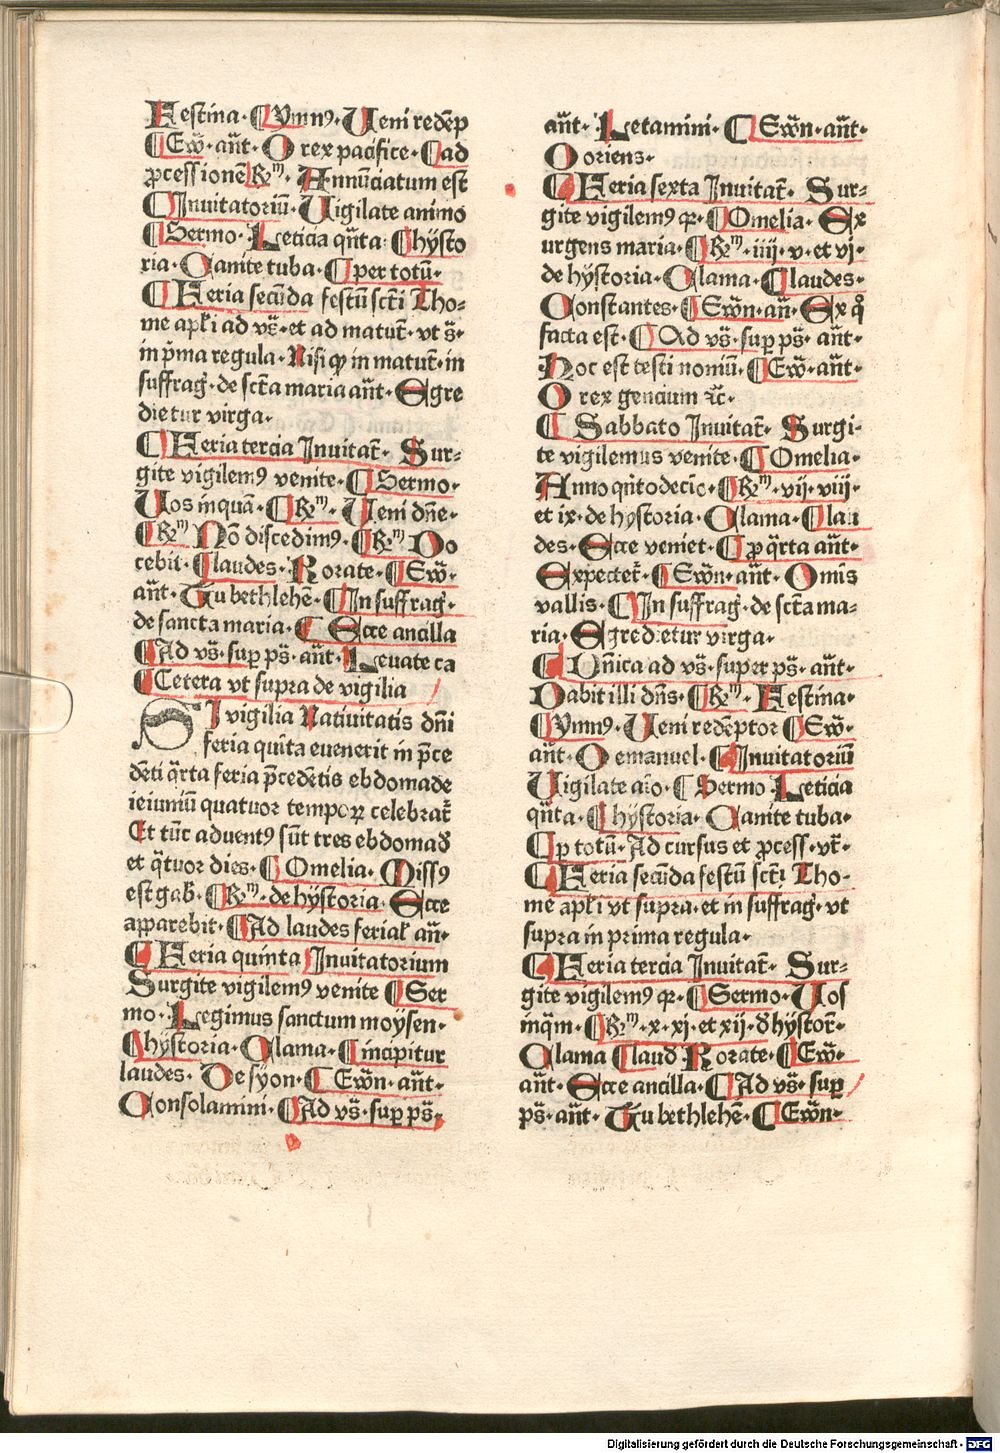 Festina· ¶Ymn9· Ueni redēp
¶Ew̄· añt· O rex pacifice· ¶ad
ꝓcessionē Rm̄· Annūciatum est
¶Inuitatoriū· Uigilate animo
¶Sermo· Leticia qn̄ta: ¶hysto
ria· Canite tuba· ¶per totū·
¶Feria secūda festū scti Tho-
me apl̄i ad vs̄· et ad matut̄· vt s̄·
in p̄ma regula· Nisi qꝫ in matut̄· in
suffraḡ· de scta maria añt· Egre
dietur virga·
¶Feria tercia Inuitat̄· Sur-
gite vigilem9 venite· ¶Sermo·
Uos inquā· ¶Rm̄· Ueni dn̄e·
¶Rm̄ Nō discedim9· ¶Rm̄ Do
cebit· ¶laudes· Rorate· ¶Ew̄·
añt· Tu bethlehē· ¶In suffraḡ·
de sancta maria· ¶ Ecce ancilla
¶Ad vs̄· suꝑ ps̄· añt· Leuate ca
¶Cetera vt supra de vigilia
SI vigilia Natiuitatis dn̄i
feria quīta euenerit in p̄ce
dēti q̄rta feria p̄cedētis ebdomade
ieiuniū quatuor tempoꝝ celebrat̄
Et tūc aduent9 sūt tres ebdomad̄
et q̄tuor dies· ¶Omelia· Miss9
est gab̄· ¶Rm̄· de hystoria· Ecce
apparebit· ¶Ad laudes ferial̄ an̄·
¶Feria quinta Inuitatorium
Surgite vigilem9 venite ¶Ser
mo· Legimus sanctum moysen·
¶hystoria· Clama· ¶incipitur
laudes· De syon· ¶Ew̄n· añt·
Consolamini· ¶Ad vs̄· suꝑ ps̄·
añt· Letamini· ¶Ew̄n· añt·
O oriens·
¶Feria sexta Inuitat̄· Sur-
gite vigilem9 qꝫ· ¶Omelia· Ex
urgens maria· ¶Rm̄· iiii· v· et vi·
de hystoria· Clama· ¶laudes·
Constantes· ¶Ew̄n· an̄· Ex q̊
facta est· ¶Ad vs̄· suꝑ ps̄· añt·
Hoc est testi noniū· ¶Ew̄· añt·
O rex gencium ⁊c̄·
¶Sabbato Inuitat̄· Surgi-
te vigilemus venite· ¶Omelia·
Anno qn̄todecīo· ¶Rm̄· vii· viii·
et ix· de hystoria· Clama· ¶lau
des· Ecce veniet· ¶ꝓ q̄rta añt·
Expectet̄· ¶Ew̄n· añt· Omīs
vallis· ¶In suffraḡ· de scta ma-
ria· Egredietur virga·
¶Dn̄ica ad vs̄· super ps̄· añt·
Dabit illi dn̄s· ¶Rm̄· Festina·
¶Ymn9· Ueni redēptor ¶Ew̄·
añt· O emanuel· ¶Inuitatoriū
Uigilate aīo· ¶Sermo Leticia
qn̄ta· ¶hystoria· Canite tuba·
¶ꝑ totū· Ad cursus et ꝓcess· vt̄·
¶Feria secūda festū scti Tho-
me apl̄i vt supra· et in suffraḡ· vt
supra in prima regula·
¶Feria tercia Inuitat̄· Sur-
gite vigilem9 qꝫ· ¶Sermo· Uos
inqm̄· ¶Rm̄· x· xi· et xii· d̄ hystor̄·
Clama ¶laud̄ Rorate· ¶Ew̄·
añt· Ecce ancilla· ¶Ad vs̄· suꝑ
ps̄· añt· Tu bethlehē· ¶Ew̄n·
Digitalisierung gefördert durch die Deutsche Forschungsgemeinschaft - DFG